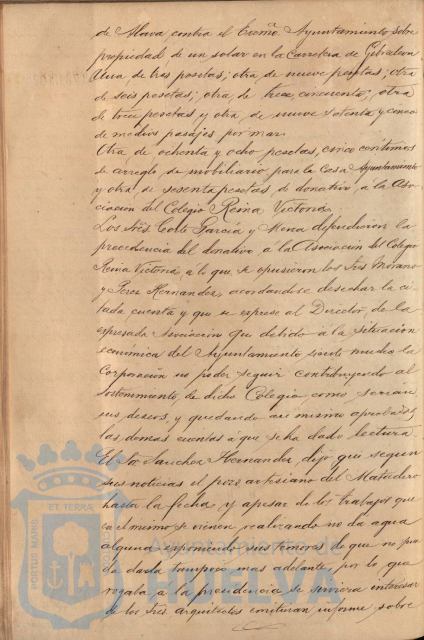 de Alava contra el Excmo Ayuntamiento sobre
propiedad de un solar en la Carretera de Gibraleon
Una de tres pesetas; otra de nueve pesetas; otra
de seis pesetas; otra, de trece, cincuenta; otra
de trece pesetas, y otra, de nueve setenta y cinco
de medios pasajes por mar.
Otra de ochenta y ocho pesetas, cinco céntimos
de arreglo de mobiliario para la Casa Ayuntamiento
y otra, de sesenta pesetas de donativo, a la Aso-
ciación del Colegio Reina Victoria.
Los Sres. Corto García y Mena defendieron la
procedencia del donativo á la Asociación del Colegio
Reina Victoria, a lo que se opusieron los Sres Morano
y Perez Hernandez, acordandose desechar la ci-
tada cuenta y que se exprese al Director de la
expresada Asociación que debido á la situación
económica del Ayuntamiento siente mucho la
Corporación no poder seguir contribuyendo al
Sostenimiento, de dicho Colegio como serian
sus deseos, y quedando asi mismo aprobadas
las demas cuentas a que se ha dado lectura.
El Sr. Sanchez Hernandez, dijo que segun
sus noticias el pozo artesiano del Matadero
hasta la fecha y apesar de los trabajos que
en el mismo se vienen realizando no da agua
alguna exponiendo sus temores de que no pue-
da darla tampoco mas adelante, por lo que
rogaba a la presidencia se sirviera interesar
de los Sres Arquitectos emitieran informe sobre
PORTUS MARIS ET TERRAE
Ayuntamiento de
HUELVA